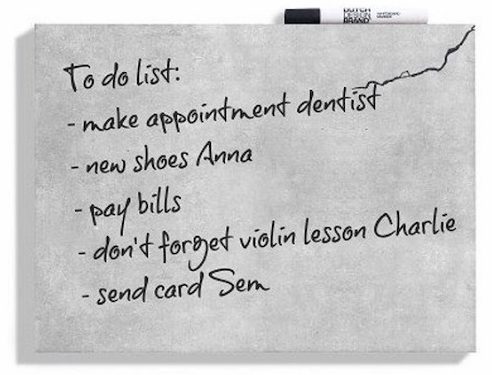 DUTCH
DESIGN
BRAND
To do list:
- make appointment dentist
- new shoes Anna
- pay bills
- don't forget violin lesson Charlie
- send card Sem